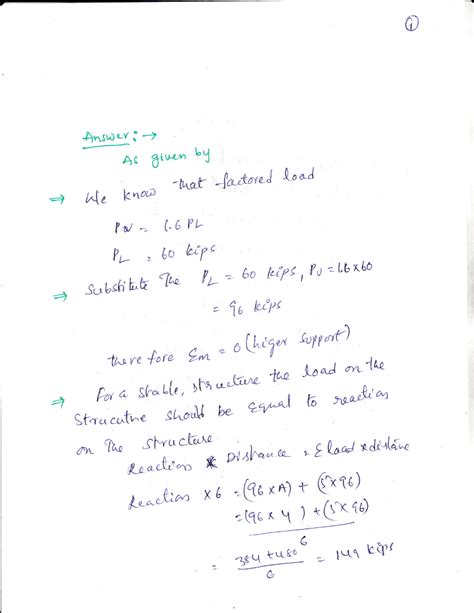 ①
Answer: →
As given by
⇒ We know that factored load
PN = 1.6 PL
PL = 60 kips
⇒ Substitute the PL = 60 kips, PU = 1.6 × 60
= 96 kips
there fore Em = 0 (higer support)
⇒ For a stable, structure the load on the
Strucutre should be equal to reaction
on the structure
Reaction × Distance = Σ load × distane
Reaction × 6 = (96 × A) + (5 × 96)
= (96 × 4) + (5 × 96)
6
= 384 + 480
6
= 149 kips